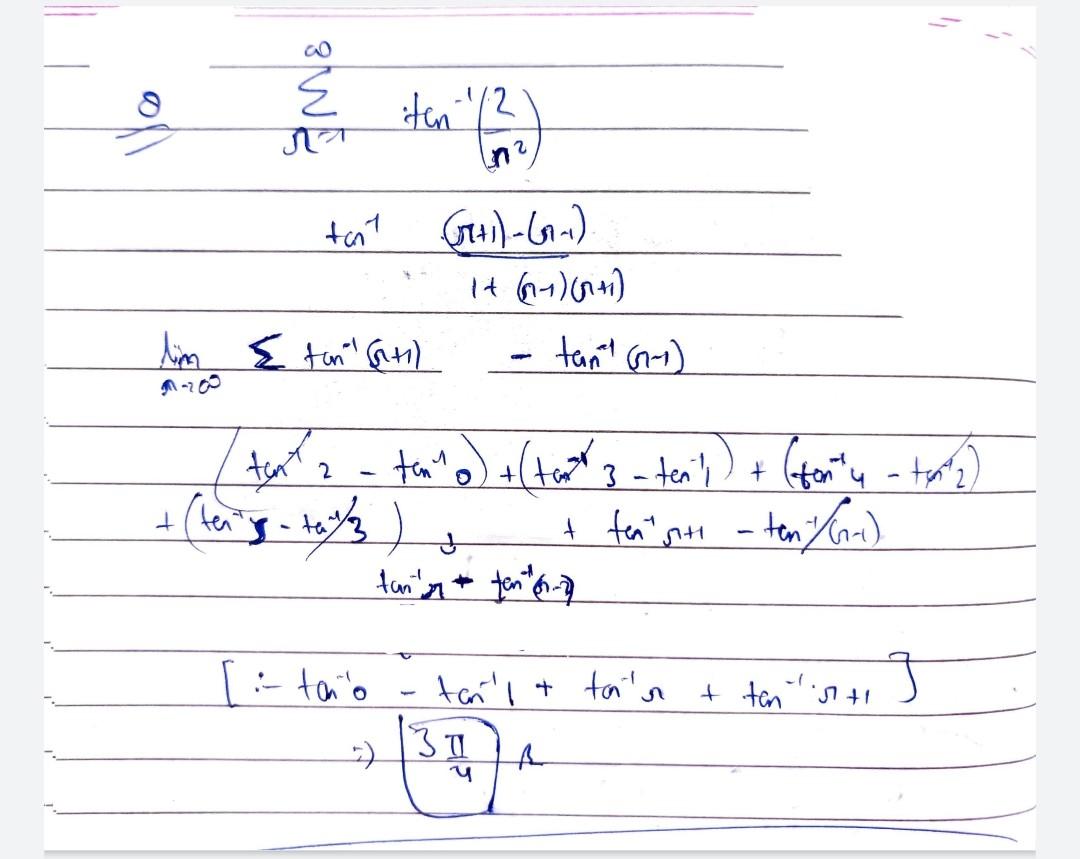 Q ∞ Σ n=1 tan⁻¹(2/n²)
tan⁻¹ (n+1)-(n-1) / 1+(n-1)(n+1)
lim n→∞ Σ tan⁻¹(n+1) - tan⁻¹(n-1)
(tan⁻¹2 - tan⁻¹0) + (tan⁻¹3 - tan⁻¹1) + (tan⁻¹4 - tan⁻¹2)
+ (tan⁻¹5 - tan⁻¹3) + tan⁻¹n+1 - tan⁻¹(n-1)
tan⁻¹n + tan⁻¹(n-2)
[:- tan⁻¹0 - tan⁻¹1 + tan⁻¹n + tan⁻¹n+1]
⇒ 3π/4